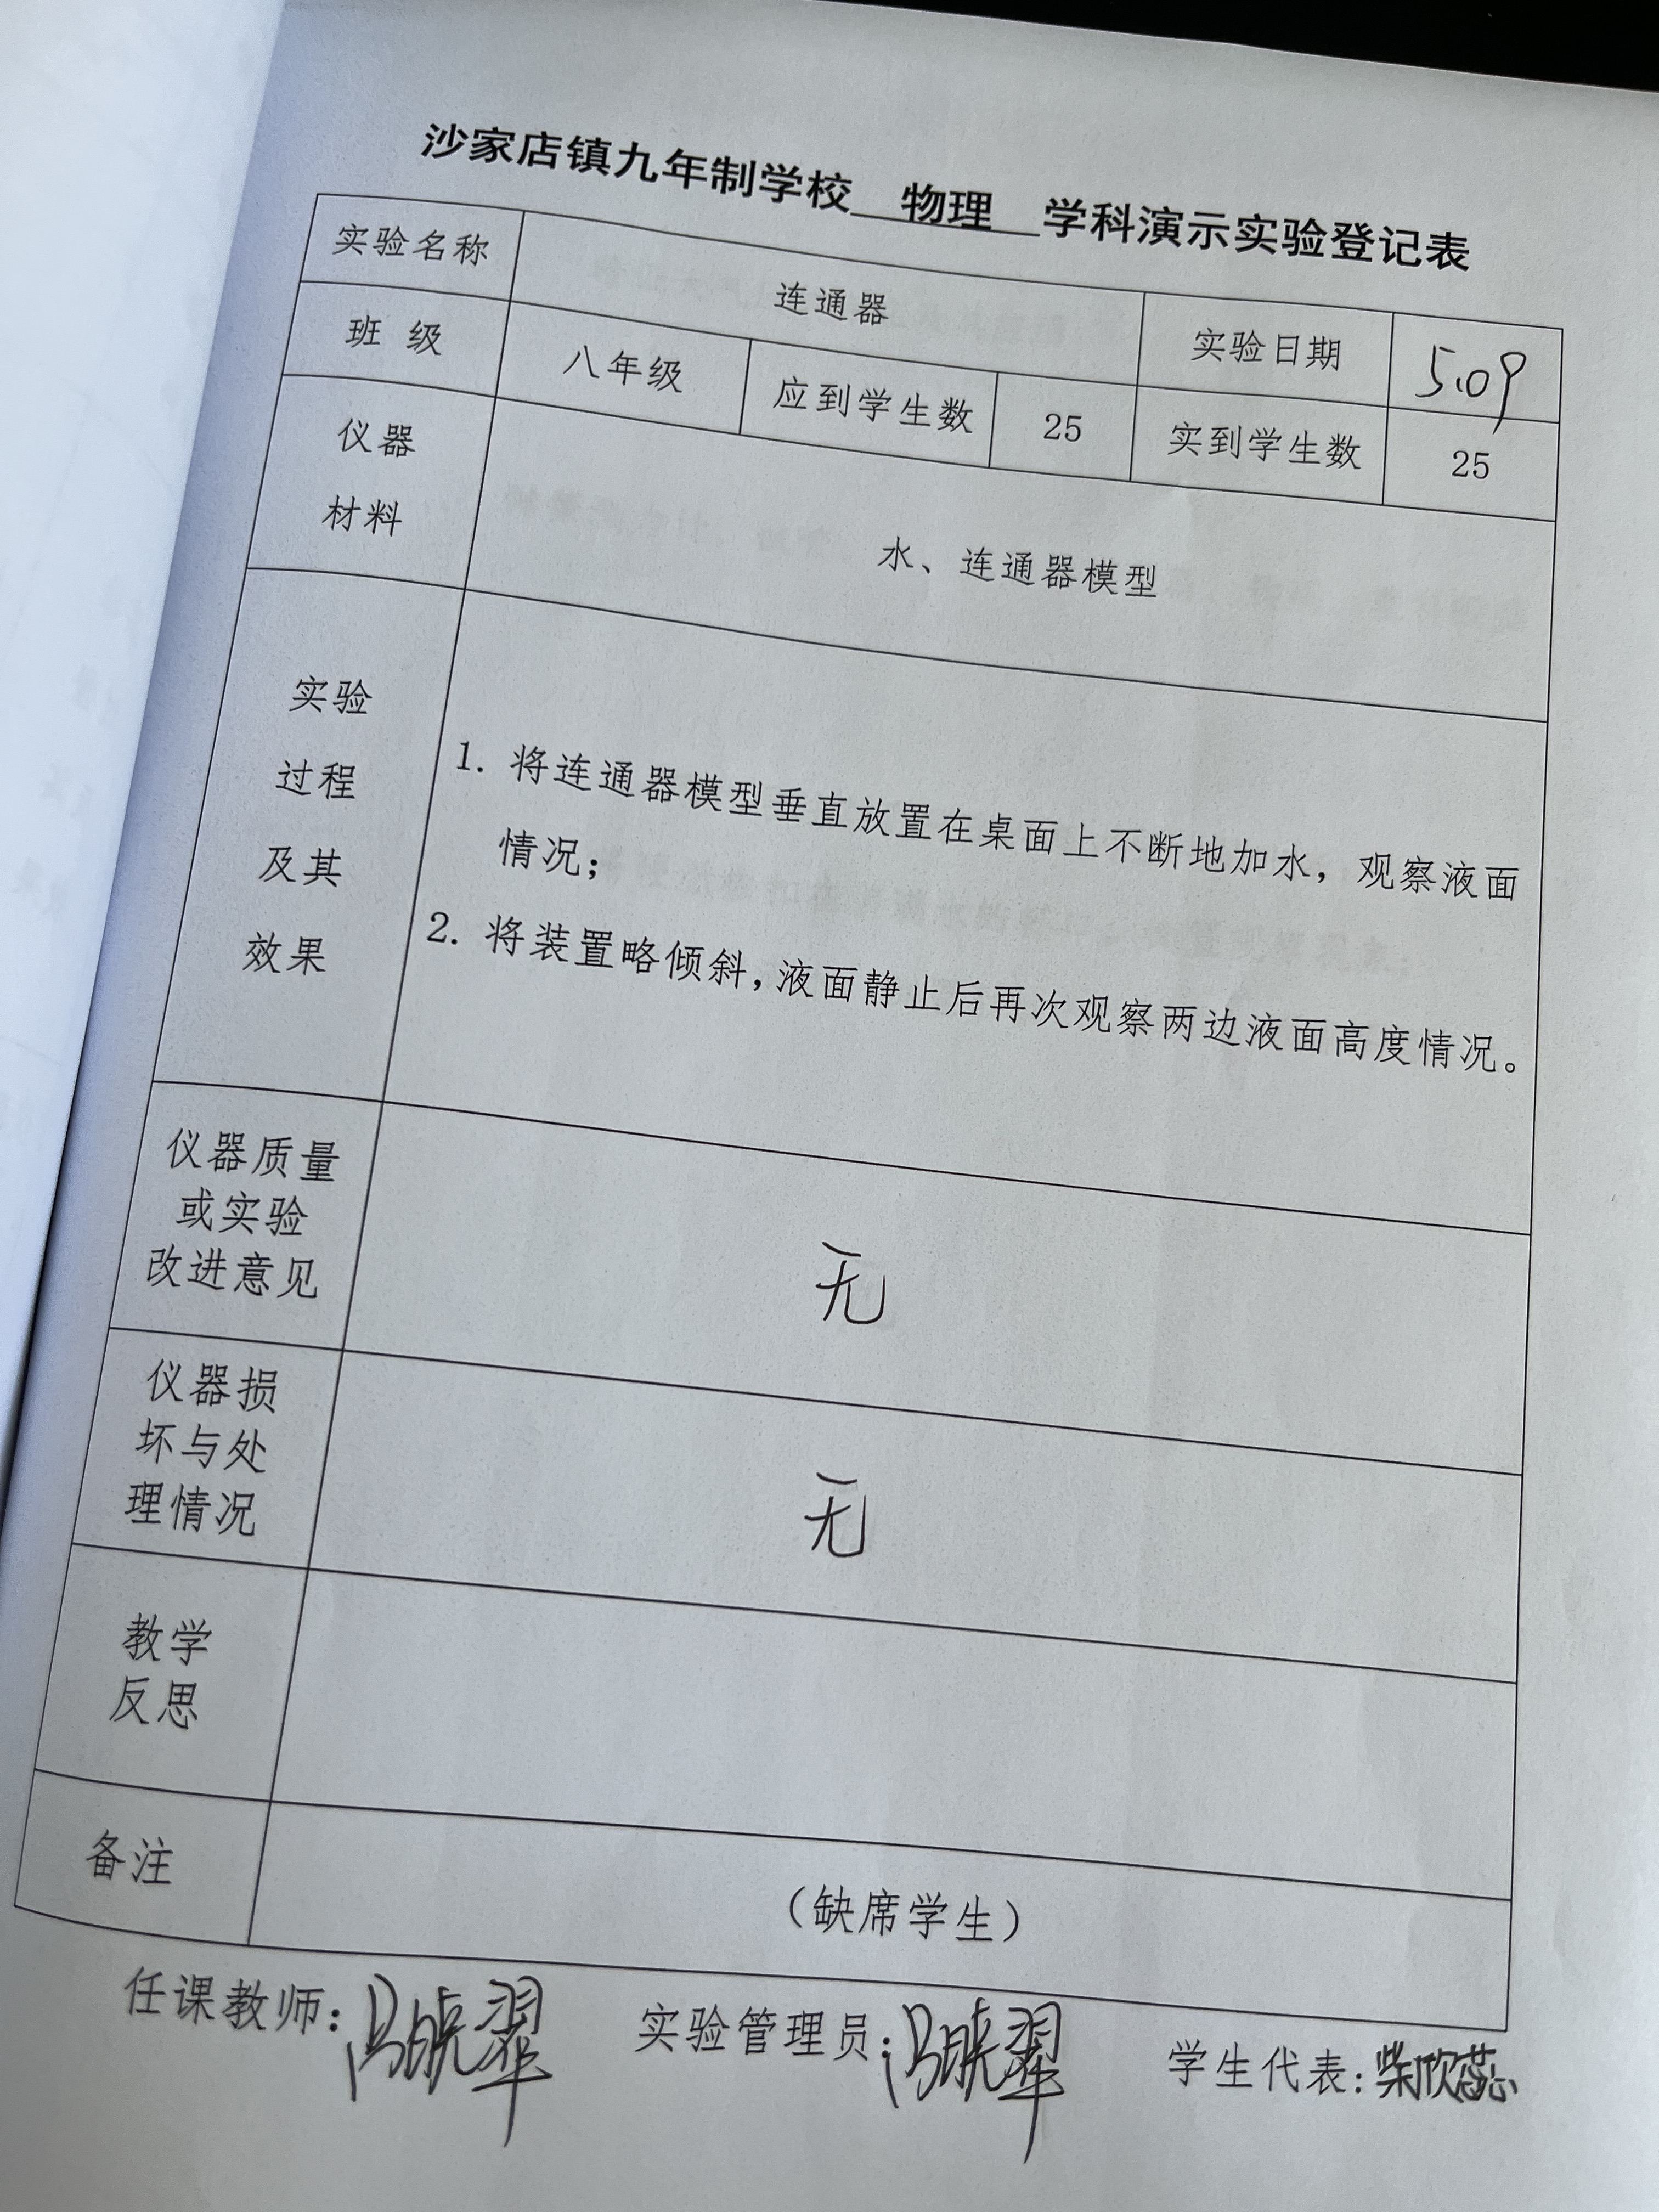 沙家店镇九年制学校 物理 学科演示实验登记表
实验名称 连通器 实验日期 5.09
班 级 八年级 应到学生数 25 实到学生数 25
仪器
材料
水、连通器模型
实验
过程
及其
效果
1. 将连通器模型垂直放置在桌面上不断地加水，观察液面
情况；
2. 将装置略倾斜,液面静止后再次观察两边液面高度情况。
仪器质量
或实验
改进意见
无
仪器损
坏与处
理情况
无
教学
反思
备注
（缺席学生）
任课教师：冯晓翠 实验管理员：冯晓翠 学生代表：柴欣蕊